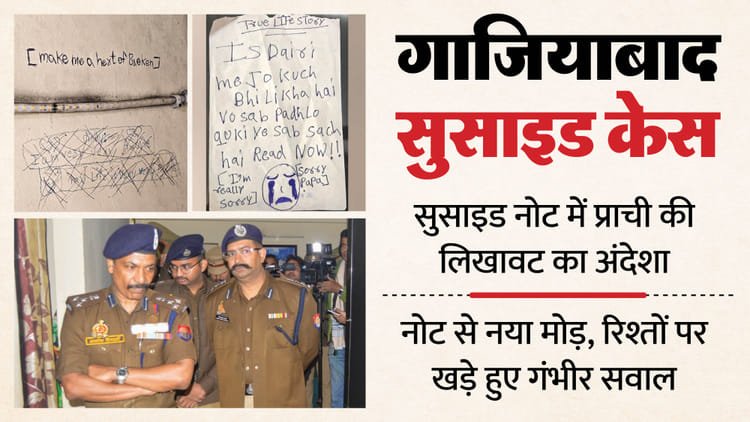 [make me a hert of Broken]
True LIFE STORY
IS Dairi
me Jo kuch
Bhi Likha hai
vo sab Padhlo
quki ye sab sach
hai Read NOW!!
[I'm
really
sorry]
[sorry
Papa]
गाजियाबाद
सुसाइड केस
सुसाइड नोट में प्राची की
लिखावट का अंदेशा
नोट से नया मोड़, रिश्तों पर
खड़े हुए गंभीर सवाल